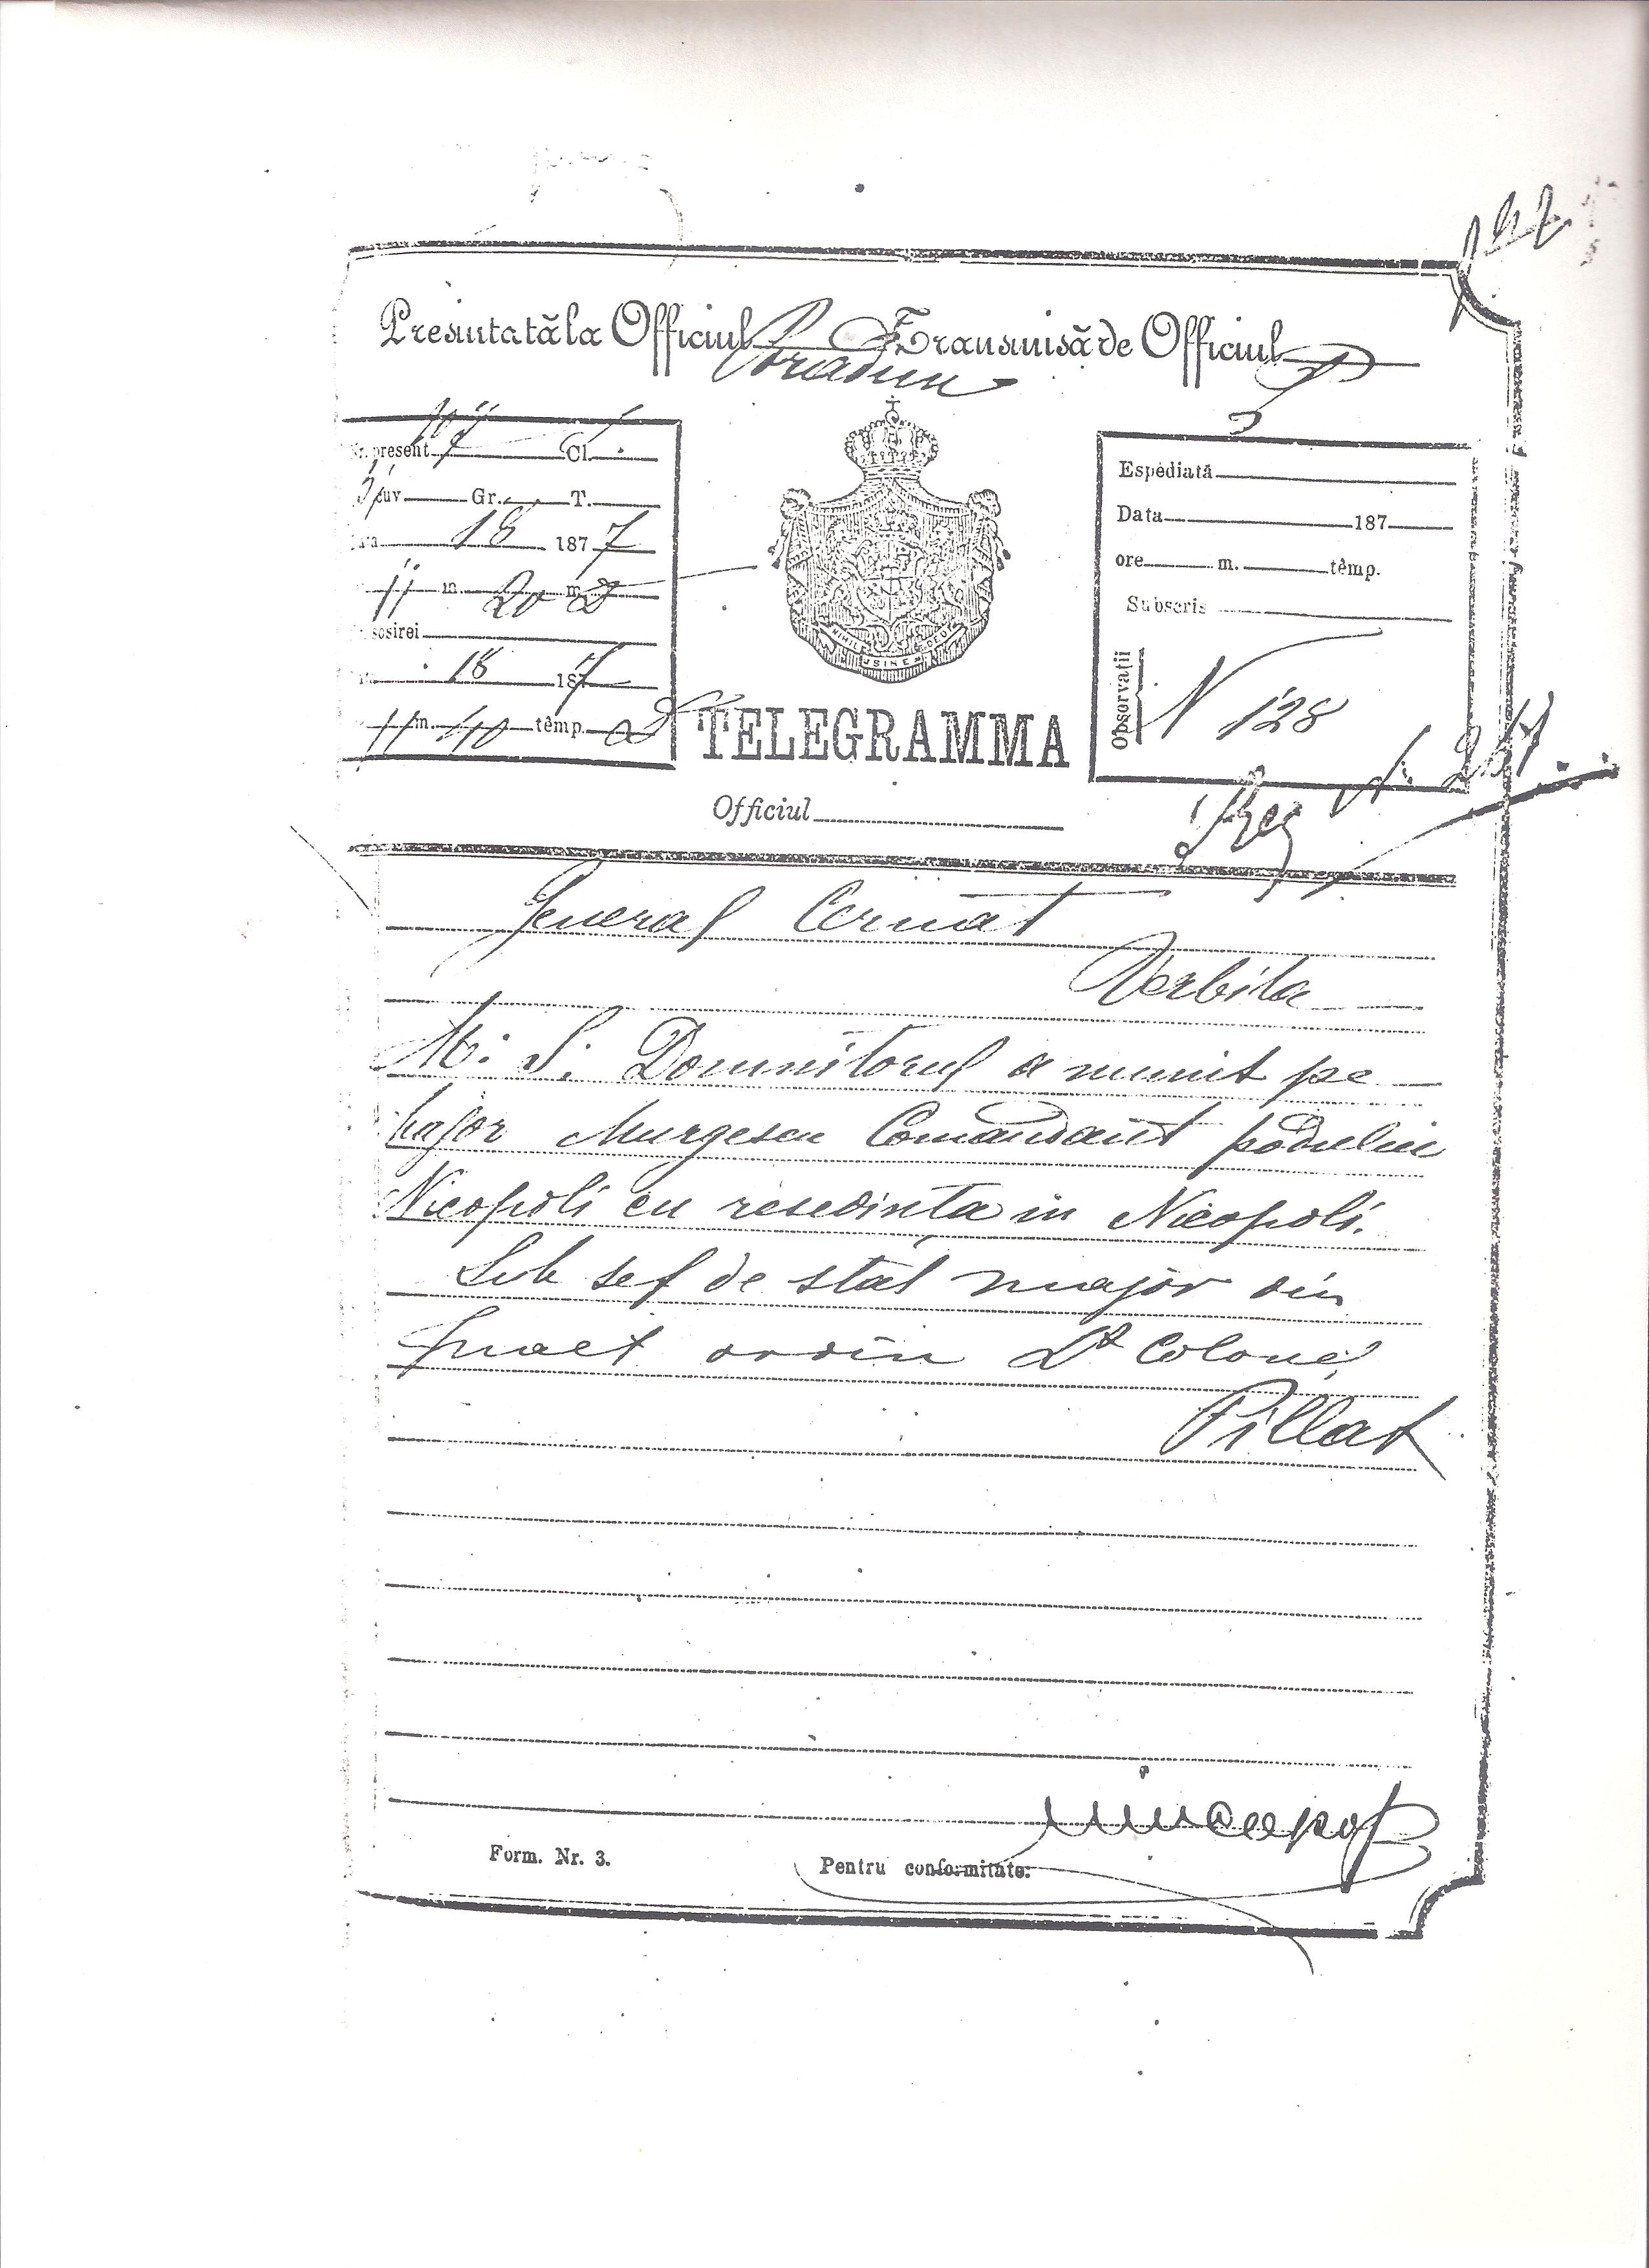 Presintată la Officiul Poradim Transmisă de Officiul
Nr. present. 107 Cl.
Cuv. Gr. T.
18 1877
11 m. 20 m
sosirei
18 187
11 m. 40 têmp.
NIHIL SINE DEO
TELEGRAMMA
Officiul
Espediată
Data 187
ore m. têmp.
Subscris
Observații
N 128
General Cernat
Verbita
M. S. Domnitorul a numit pe
Major Murgescu Comandant podului
Nicopoli cu resedinta in Nicopoli.
Sub sef de stat major din
inalt ordin Lt Colonel
Pillat
Form. Nr. 3.
Pentru conformitate: